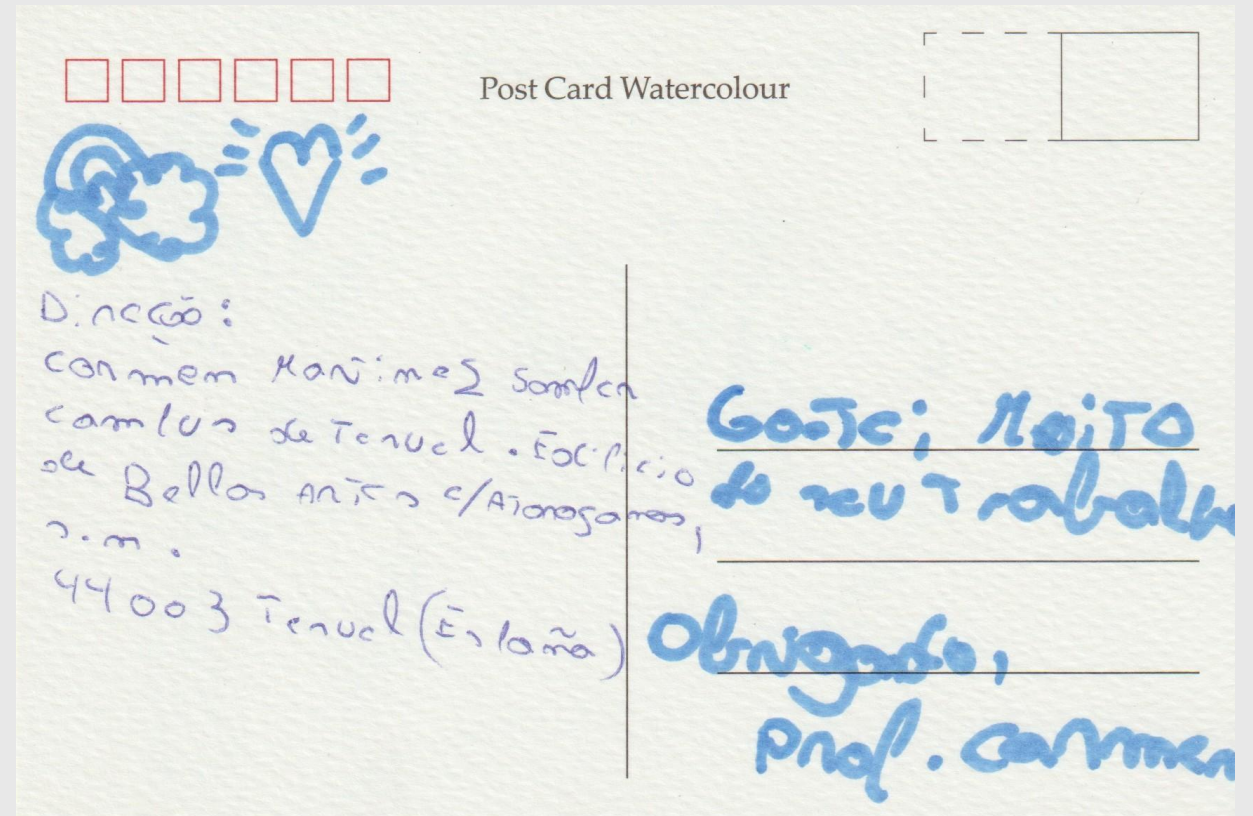 Post Card Watercolour
Direcção:
Carmen Martinez Samper
Campus de Teruel. Edificio
de Bellas Artes c/Atarazanas,
s.n.
44003 Teruel (España)
Gostei Moito
do seu Trabalho
Obrigado,
prof. Carmen